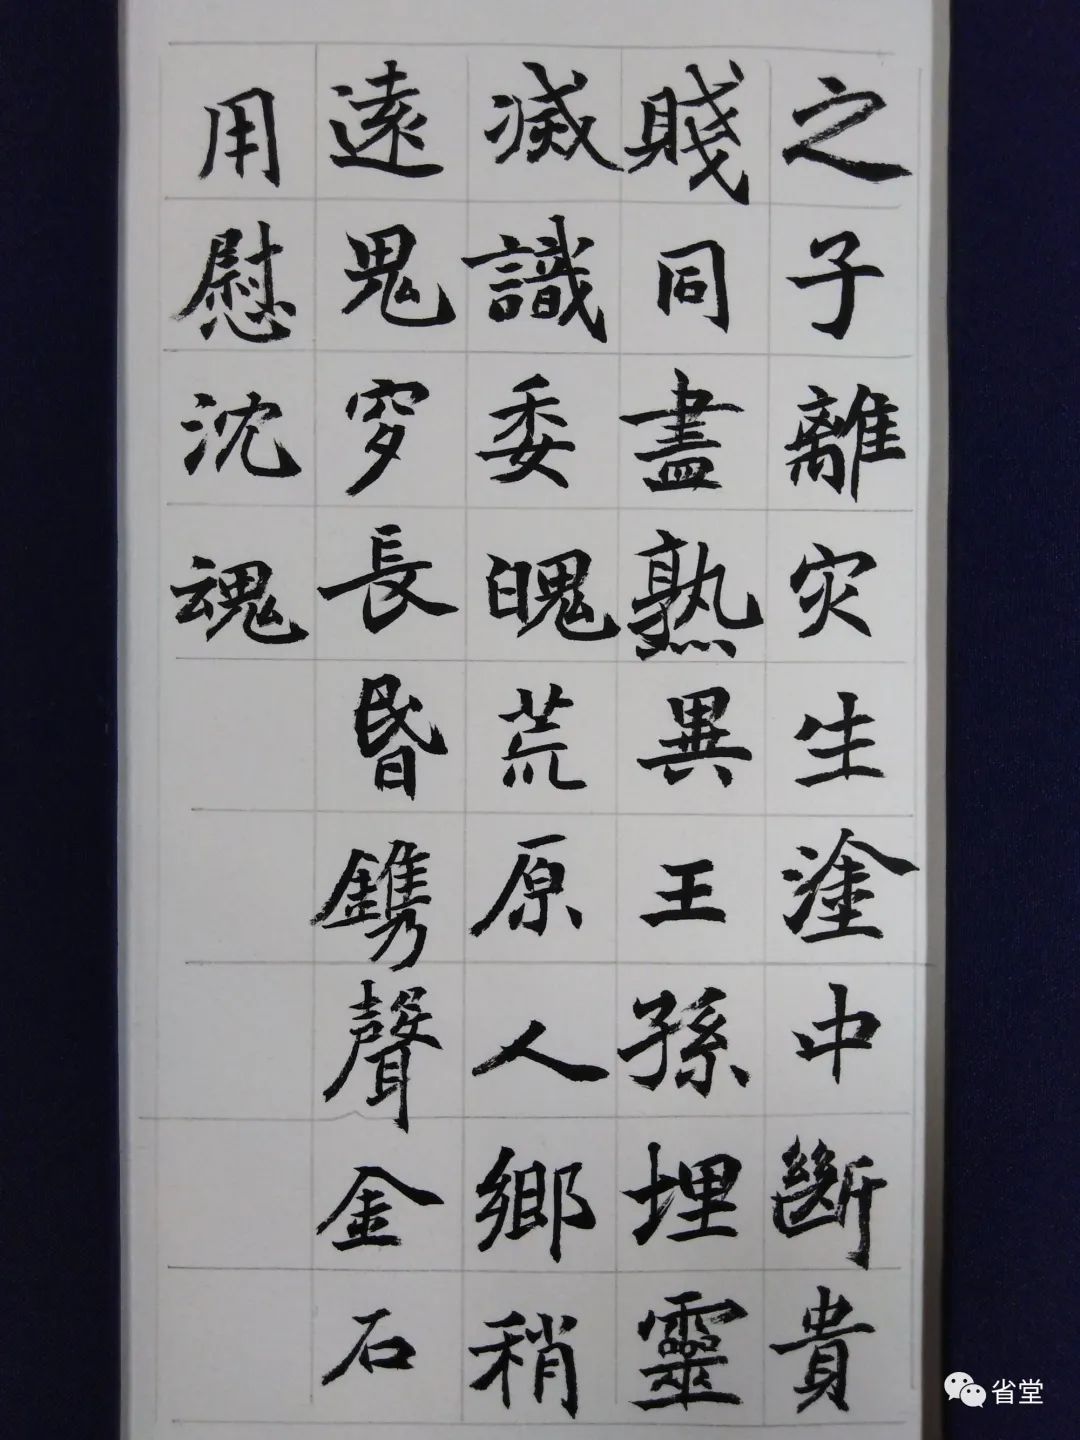 之子離灾生塗中斷貴
賤同盡熟異王孫埋靈
滅識委魄荒原人鄉稍
遠鬼穸長昏鐫聲金石
用慰沈魂
省堂